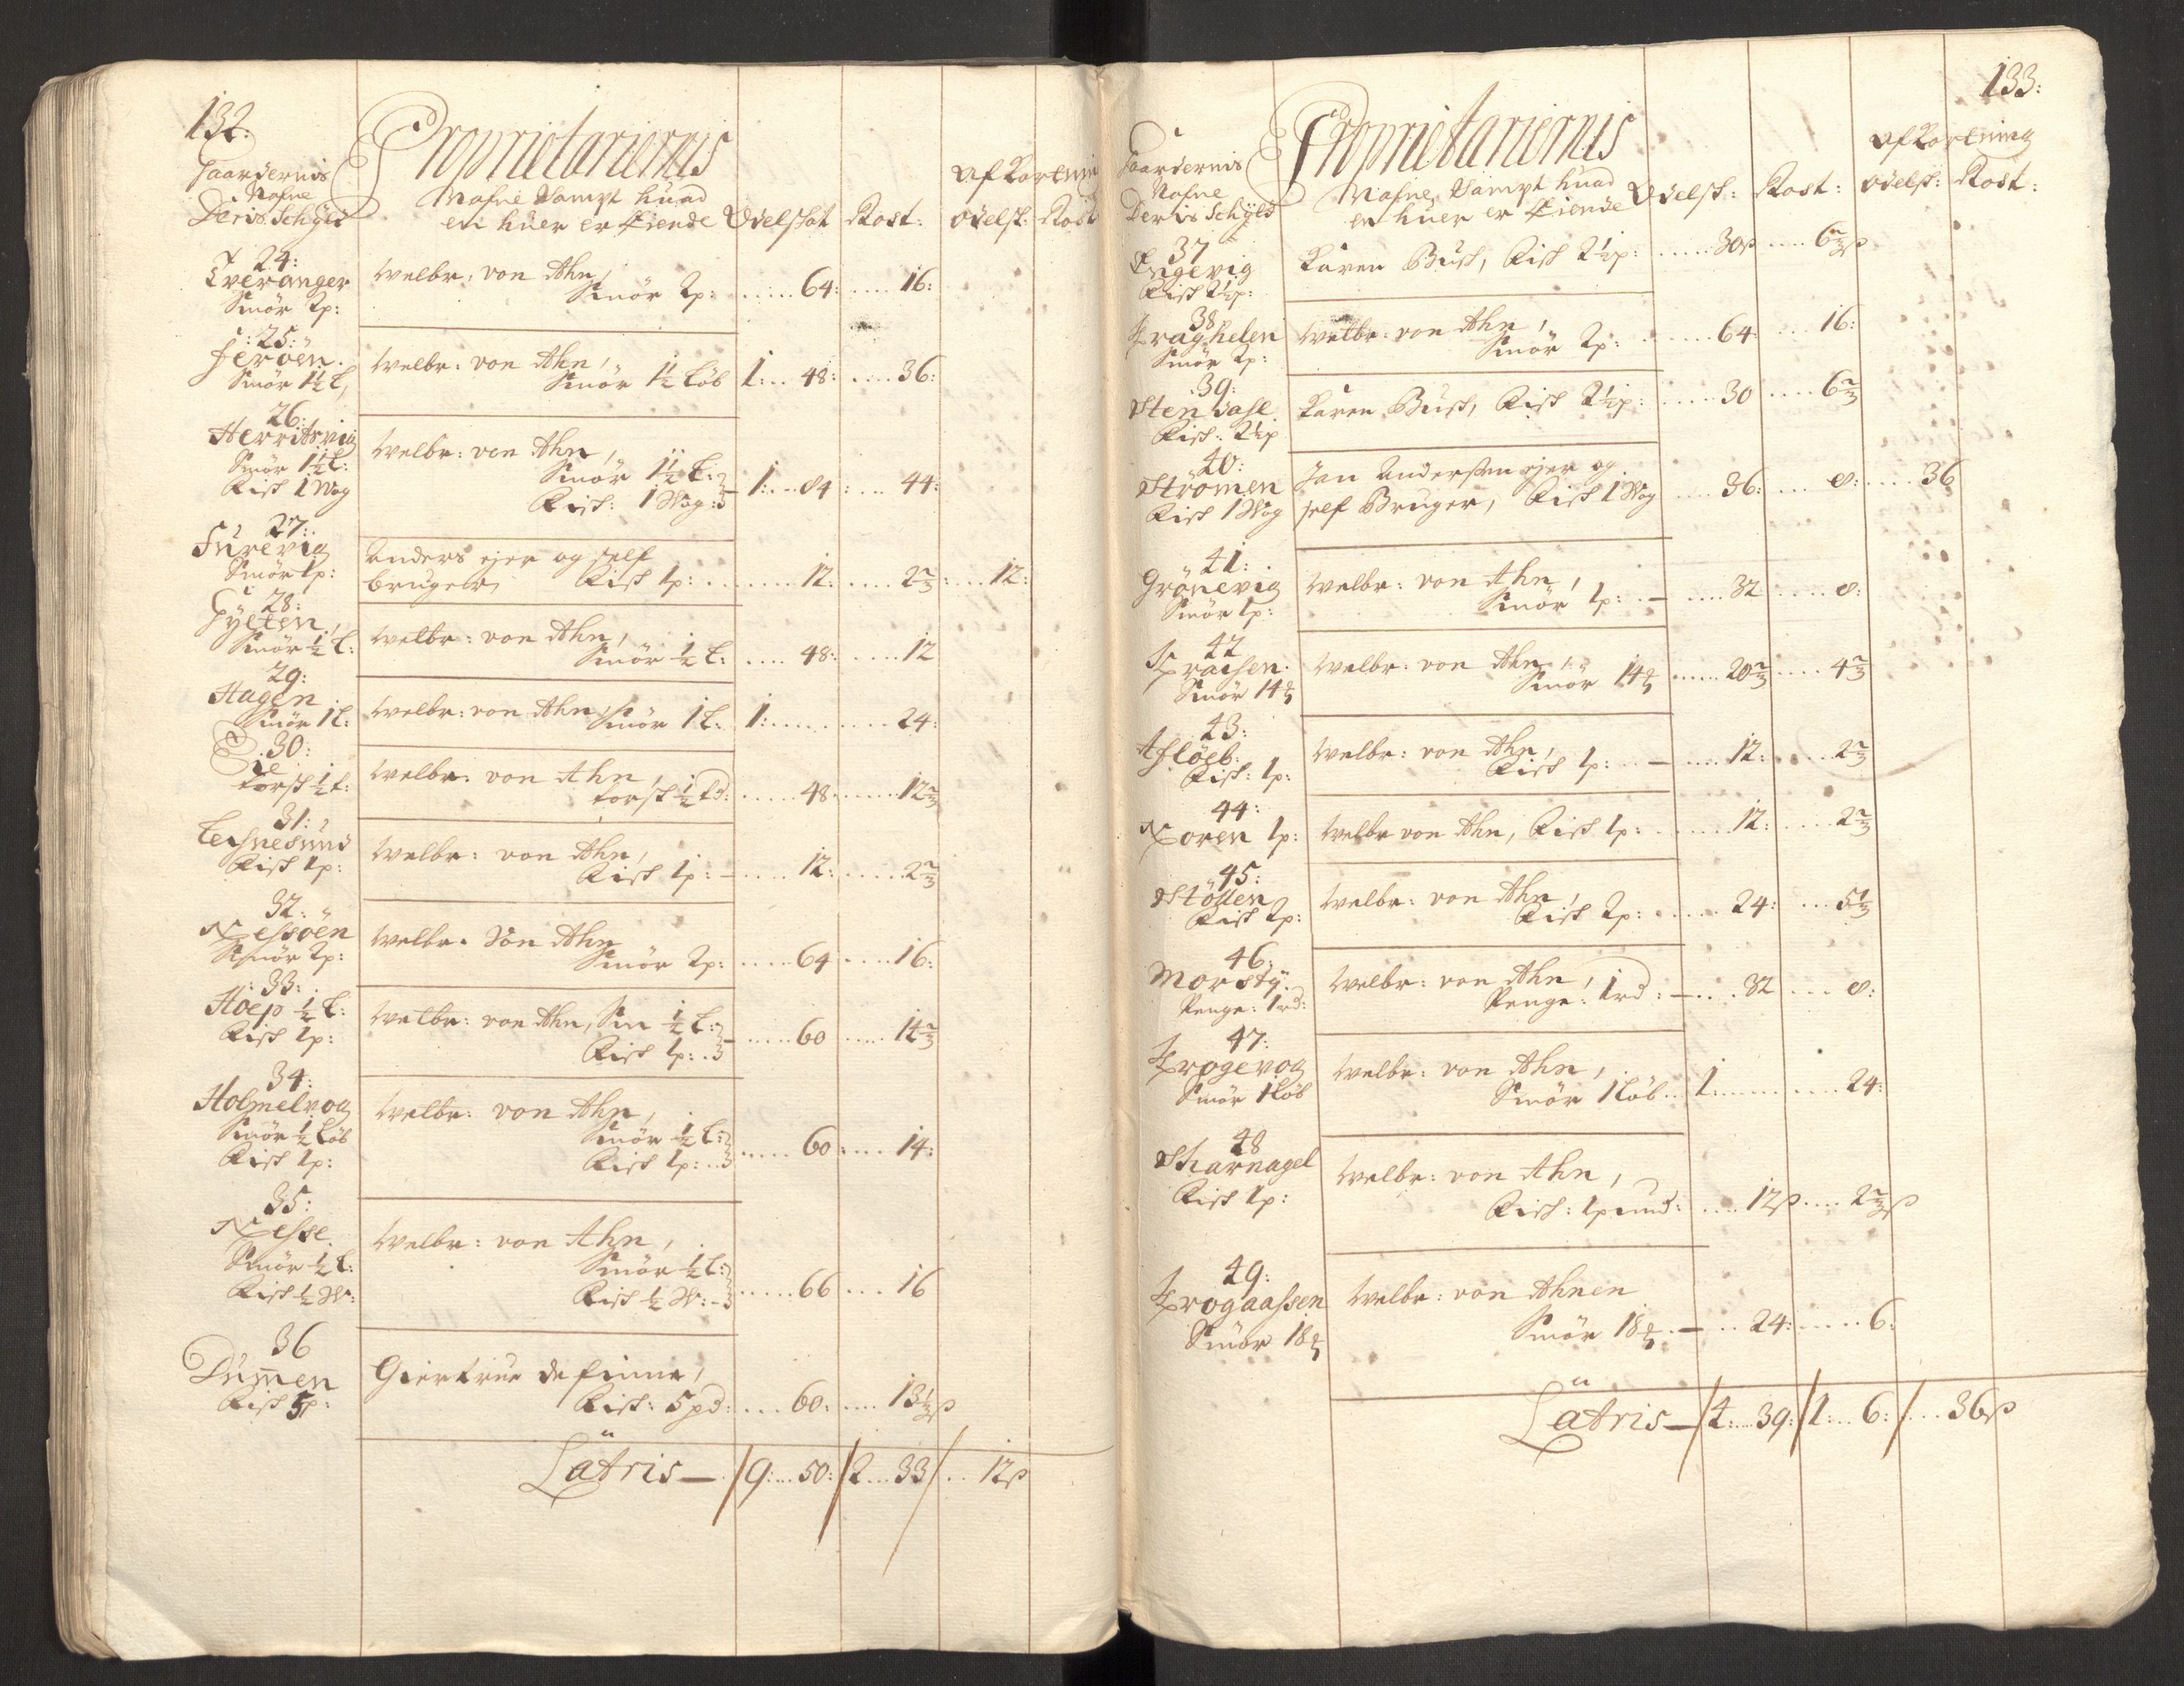 132:
Gaardernis
Nafne
Deris Schÿld
Proprietariernis
Nafne Sampt huad
en huer er Eiende
Odelskat
Rost:
Afkortnin
odelsk:
Rost
24:
Tveranger
Smör 2p:
Welbr: von Ahn,
Smör 2p: ..... 64: .... 16:
25:
Jeröen.
Smör 1½ L,
Welbr: von Ahn,
Smör 1½ Löb 1: .. 48: .... 36:
26:
Herritsvig
Smör 1½ L:
Fisk 1 Wog
Welbr: von Ahn,
Smör 1½ L:
Fisk: 1 Wog: 1: ... 84: ... 44:
27:
Furevig
Smör 1p:
Anders ejer og self
bruger, Fisk 1p: ........ 12: .... 2⅔ .... 12:
28:
Gÿlten,
Smör ½ L:
Welbr: von Ahn,
Smör ½ L: .... 48: .... 12
29:
Hagen
Smör 1 L:
Welbr: von Ahn, Smör 1 L: 1: ........... 24:
30:
Öe
torsk ½ t:
Welbr: von Ahn,
torsk ½ td: ..... 48: ..... 12⅔
31:
Lersnesund
Fisk 1p:
Welbr: von Ahn,
Fisk 1p: – .... 12: ..... 2⅔
32:
Nessöen
Smör 2p:
Welbr. Von Ahn
Smör 2p: ..... 64 .... 16:
33:
Höep ½ L:
Fisk 1p:
Welbr: von Ahn, Sm ½ L:
Fisk 1p: – ..... 60 ..... 14⅔
34:
Holmelvog
Smör ½ Löb
Fisk 1p:
Welbr: von Ahn,
Smör ½ L:
Fisk 1p: ..... 60: .... 14:
35:
Nesse
Smör ½ L:
Fisk ½ W:
Welbr: von Ahn,
Smör ½ L:
Fisk ½ W: ..... 66 .... 16
36
Dümen
Fisk 5p:
Giertrue de finne,
Fisk: 5 pd: .... 60: .... 13⅓ß
Latris – /9: ... 50: /2 ... 33/ .. 12ß
133:
Gaardernis
Nafne
Deris Schÿld
Proprietariernis
Nafne, Sampt huad
en huer er Eiende
Odelsk:
Rost:
Afkortning
odelsk:
Rost:
37
Engevig
Fisk 2½p:
Karen Busk, Fisk 2½p: ..... 30ß .... 6⅔ß
38
Kraghelen
Smör 2p:
Welbr: von Ahn,
Smör 2p: ...... 64: .... 16:
39:
Stensase
Fisk: 2½p
Karen Busk, Fisk 2½p: ..... 30 .... 6⅔
40:
Strömen
Fisk 1 Wog
Jan Andersen ejer og
self Bruger, Fisk 1 Wog .... 36: .... 8: .... 36
41:
Grönevig
Smör 1p:
Welbr: von Ahn,
Smör 1p: – .... 32 ..... 8:
42
Smör 14
Welbr: von Ahn,
Smör 14 ...... 20⅔ .... 4⅔
43:
Afløeb:
Fisk: 1p:
Welbr: von Ahn,
Fisk 1p: – .... 12: .... 2⅔
44:
Noren 1p:
Welbr von Ahn, Fisk 1p: ....... 12: .... 2⅔
45:
Stöllen
Fisk 2p:
Welbr: von Ahn,
Fisk 2p: ..... 24: ... 5⅓
46:
Morstÿ.
Penge: 1 rd:
Welbr: von Ahn,
Penge: 1 rd: – ... 32 .... 8:
47:
Krogevog
Smör 1 Löb
Welbr: von Ahn,
Smör 1 Löb .. 1: ............ 24:
48
Skarnagel
Fisk 1p:
Welbr: von Ahn,
Fisk: 1 pund: .... 12ß ... 2⅔ß
49:
Krogaassen
Smör 18
Welbr: von Ahnen
Smör 18 – .. 24: ..... 6:
Latris – /4: ... 39: /1: .. 6: / ... 36ß